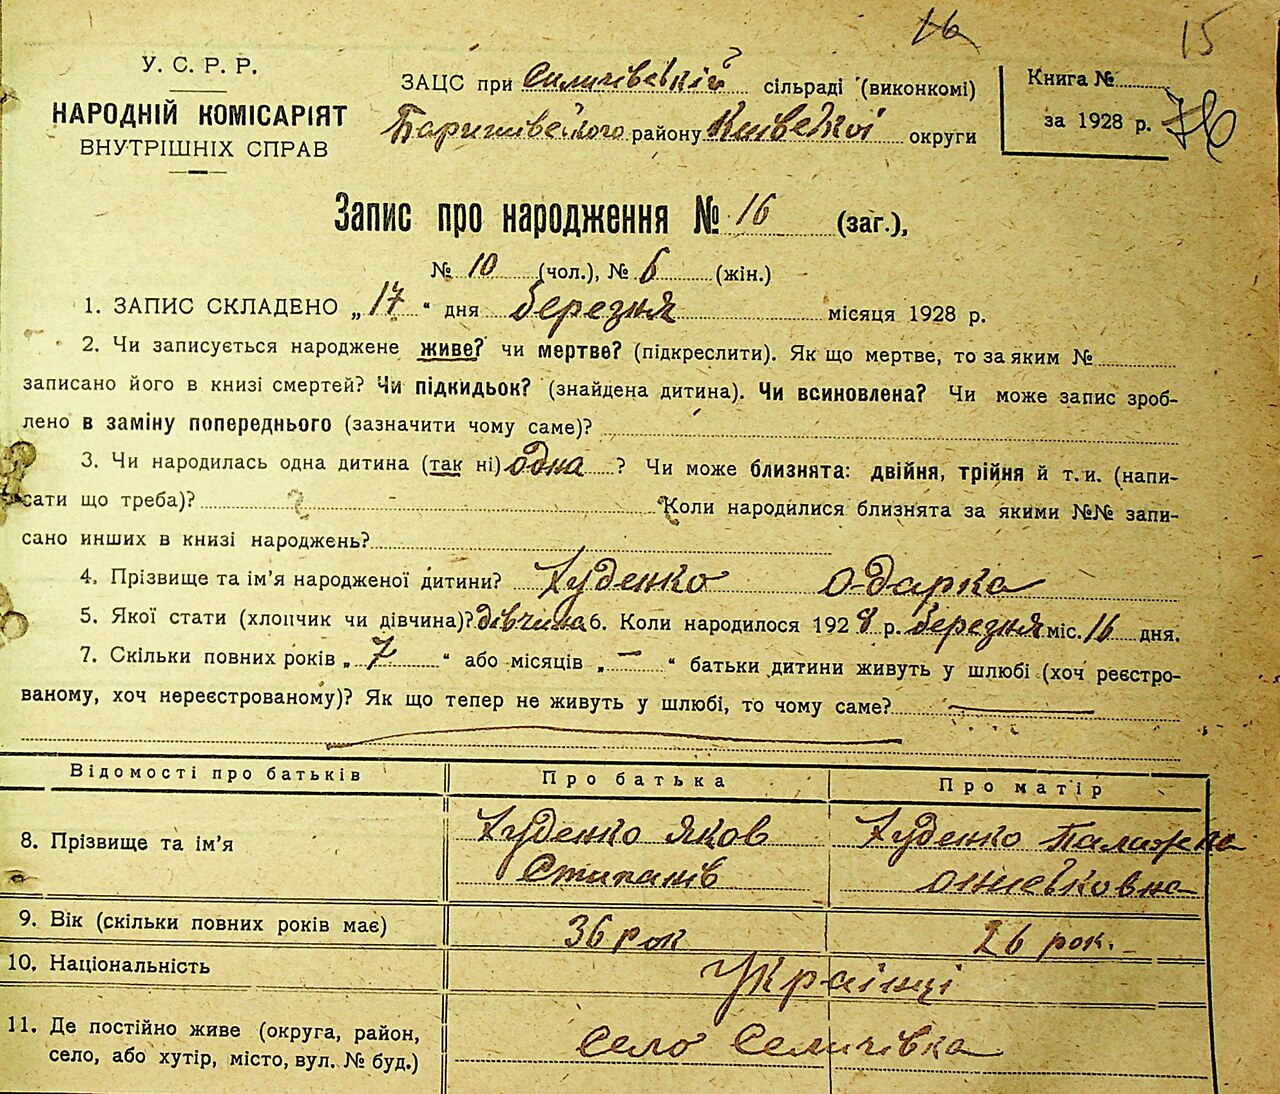 16 15
У. С. Р. Р.
НАРОДНІЙ КОМІСАРІЯТ
ВНУТРІШНІХ СПРАВ
ЗАЦС при Силичівській сільраді (виконкомі)
Баришівського району Київської округи
Книга №
за 1928 р. 76
Запис про народження № 16 (заг.),
№ 10 (чол.), № 6 (жін.)
1. ЗАПИС СКЛАДЕНО „17" дня березня місяця 1928 р.
2. Чи записується народжене живе? чи мертве? (підкреслити). Як що мертве, то за яким №
записано його в книзі смертей? Чи підкидьок? (знайдена дитина). Чи всиновлена? Чи може запис зроб-
лено в заміну попереднього (зазначити чому саме)?
3. Чи народилась одна дитина (так ні) одна ? Чи може близнята: двійня, трійня й т. и. (напи-
сати що треба)? Коли народилися близнята за якими №№ запи-
сано инших в книзі народжень?
4. Прізвище та ім'я народженої дитини? Худенко Одарка
5. Якої стати (хлопчик чи дівчина)? дівчина 6. Коли народилося 1928 р. березня міс. 16 дня.
7. Скільки повних років „7" або місяців „—" батьки дитини живуть у шлюбі (хоч реєстро-
ваному, хоч нереєстрованому)? Як що тепер не живуть у шлюбі, то чому саме?
Відомості про батьків Про батька Про матір
8. Прізвище та ім'я Худенко Яков Худенко
Стипанів
9. Вік (скільки повних років має) 36 рок 26 рок.
10. Національність Українці
11. Де постійно живе (округа, район,
село, або хутір, місто, вул. № буд.) село Селичівка